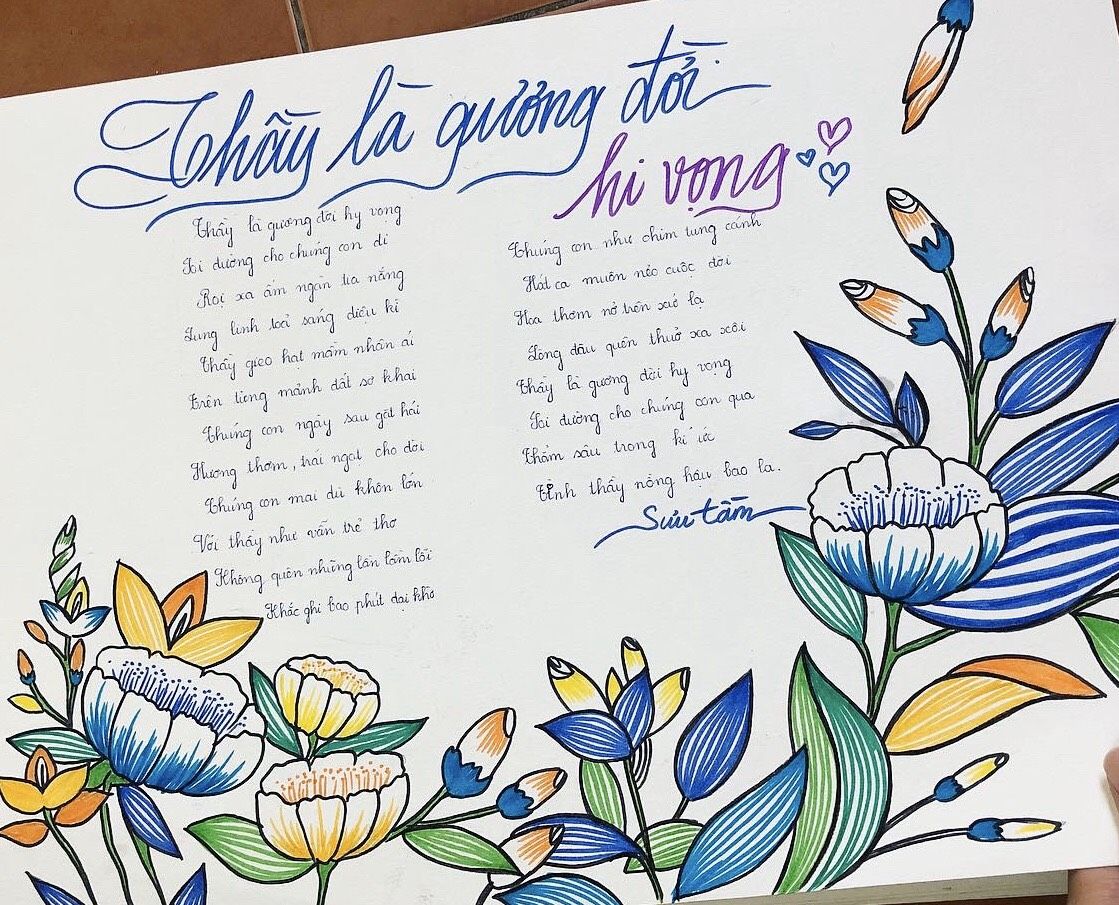 Thầy là gương đời
hi vọng
Thầy là gương đời hy vọng
Soi đường cho chúng con đi
Rọi xa ấm ngàn tia nắng
Lung linh toả sáng diệu kì
Thầy gieo hạt mầm nhân ái
Trên từng mảnh đất sơ khai
Chúng con ngày sau gặt hái
Hương thơm, trái ngọt cho đời
Chúng con mai dù khôn lớn
Với thầy như vẫn trẻ thơ
Không quên những lần lầm lỗi
Khắc ghi bao phút dại khờ
Chúng con như chim tung cánh
Hát ca muôn nẻo cuộc đời
Hoa thơm nở trên xứ lạ
Lòng đâu quên thuở xa xôi
Thầy là gương đời hy vọng
Soi đường cho chúng con qua
Thẳm sâu trong kí ức
Tình thầy nồng hậu bao la.
Sưu tầm